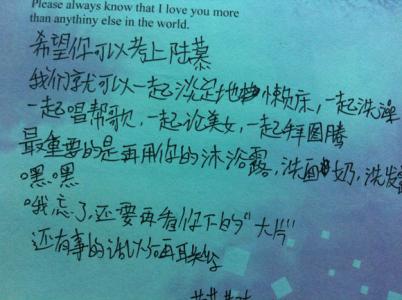 Please always know that I love you more
than anythiny else in the world.
希望你可以考上陆慕
我们就可以一起淡定地懒床，一起洗澡
一起唱帮歌，一起论美女，一起拜图腾
最重要的是再用你的沐浴露，洗面奶，洗发露
。嘿。嘿
。哦忘了，还要再看你下的“大片”
还有事的话以后再联络